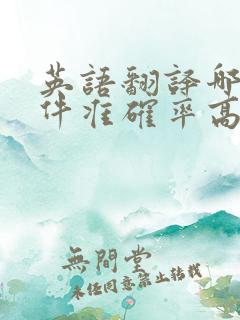 英語翻譯哪
件准確率高
無間堂
未经同意禁止转载